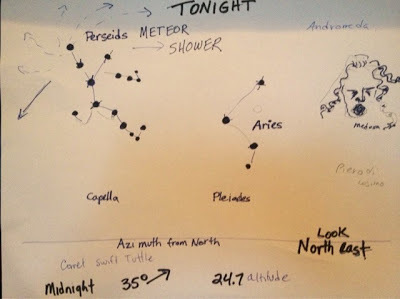 TONIGHT
Perseids METEOR
SHOWER
Andromeda
Aries
medusa
Capella
Pleiades
Azimuth from North
Look
North east
Comet Swift Tuttle
Midnight 35° 24.7 altitude